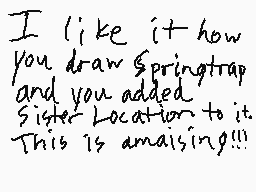 I like it how
you draw Springtrap
and you added
Sister Location to it.
This is amaising!!!